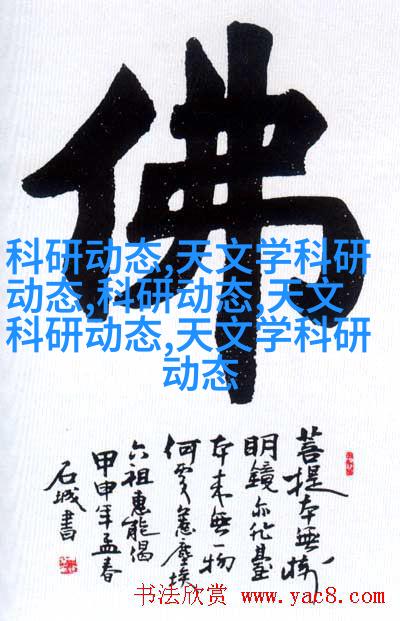 佛
科研动态,天文学科研
动态,科研动态,天文
科研动态,天文学科研
动态
菩提本無樹
明鏡亦非臺
本来無一物
何处惹塵埃
六祖惠能偈
甲申年孟春
石城書
书法欣赏
www.yac8.com